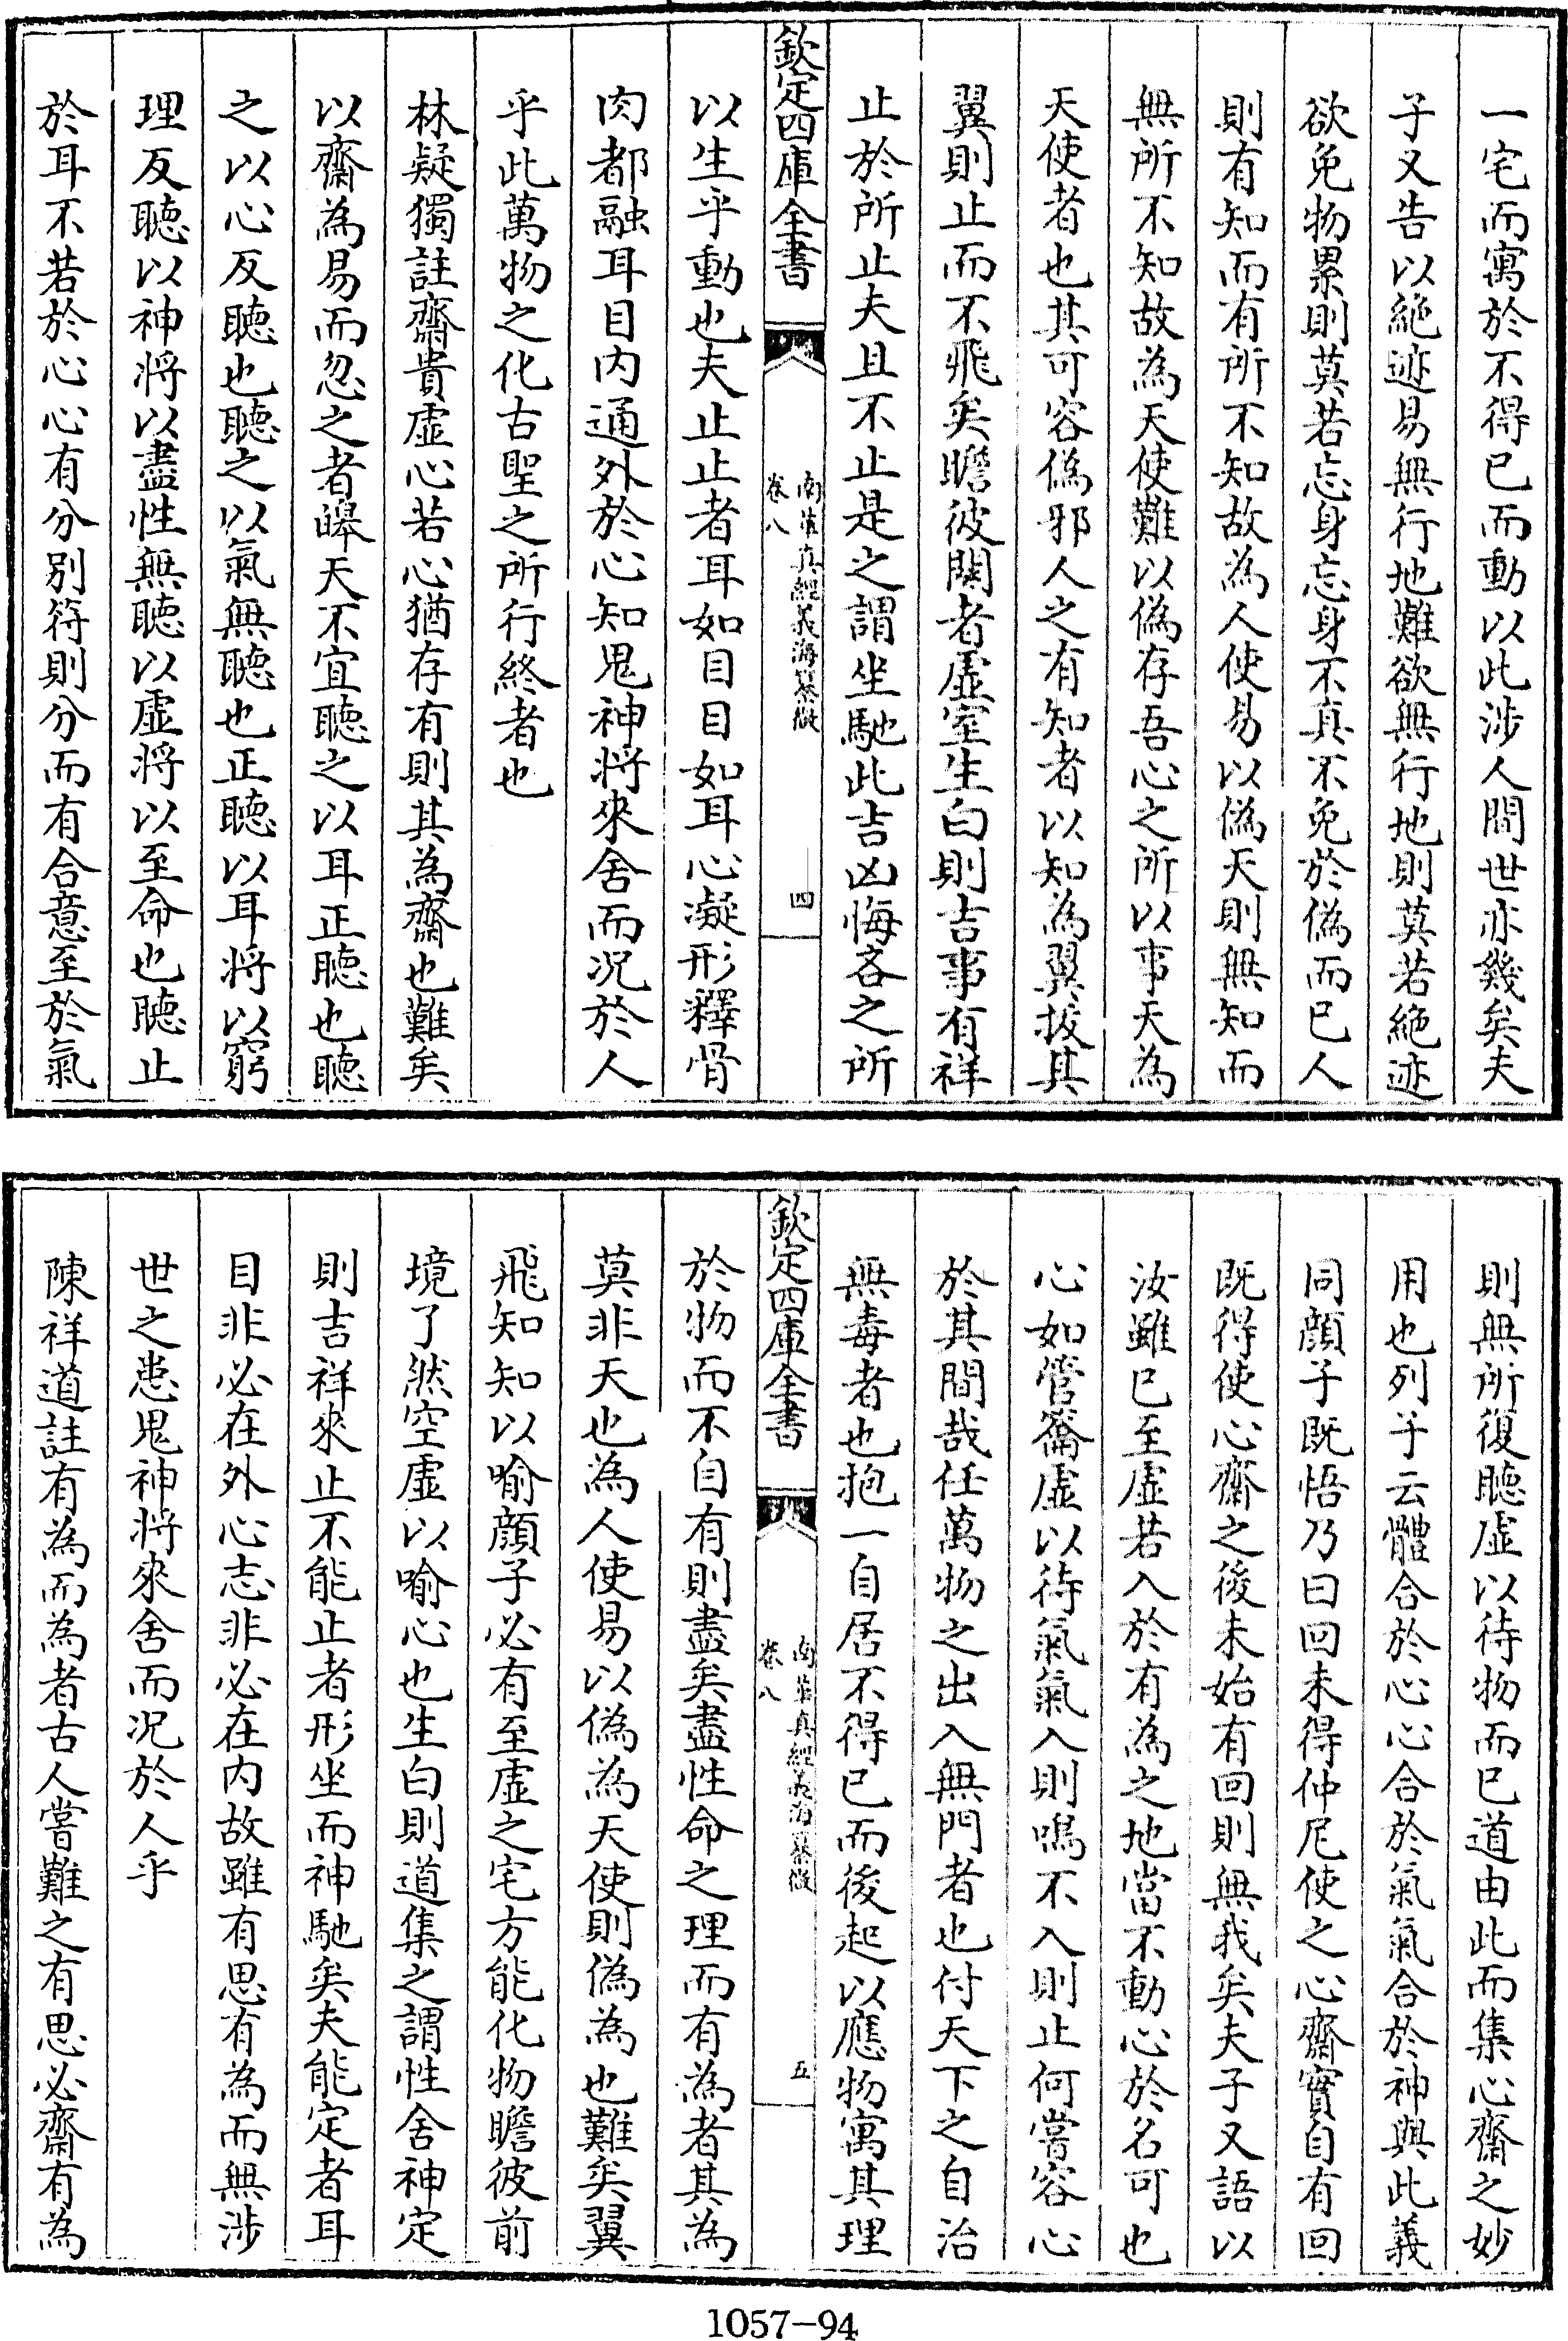 一宅而寓於不得已而動以此涉人間世亦幾矣夫
子又告以絶迹易無行地難欲無行地則莫若絶迹
欲免物累則莫若忘身忘身不真不免於偽而已人
則有知而有所不知故為人使易以偽天則無知而
無所不知故為天使難以偽存吾心之所以事天為
天使者也其可容偽邪人之有知者以知為翼拔其
翼則止而不飛矣瞻彼闋者虛室生白則吉事有祥
止於所止夫且不止是之謂坐馳此吉凶悔吝之所
欽定四庫全書
南華真經義海纂微
卷八
四
以生乎動也夫止止者耳如目目如耳心凝形釋骨
肉都融耳目内通外於心知鬼神將來舍而況於人
乎此萬物之化古聖之所行終者也
林疑獨註齋貴虛心若心猶存有則其為齋也難矣
以齋為易而忽之者皞天不宜聽之以耳正聽也聽
之以心反聽也聽之以氣無聽也正聽以耳將以窮
理反聽以神將以盡性無聽以虛將以至命也聽止
於耳不若於心心有分别符則分而有合意至於氣
則無所復聽虛以待物而已道由此而集心齋之妙
用也列子云體合於心心合於氣氣合於神與此義
同顔子既悟乃曰回未得仲尼使之心齋實自有回
既得使心齋之後未始有回則無我矣夫子又語以
汝雖已至虛若入於有為之地當不動心於名可也
心如管籥虛以待氣氣入則鳴不入則止何嘗容心
於其間哉任萬物之出入無門者也付天下之自治
無毒者也抱一自居不得已而後起以應物寓其理
欽定四庫全書
南華真經義海纂微
卷八
五
於物而不自有則盡矣盡性命之理而有為者其為
莫非天也為人使易以偽為天使則偽為也難矣翼
飛知知以喻顔子必有至虛之宅方能化物瞻彼前
境了然空虛以喻心也生白則道集之謂性舍神定
則吉祥來止不能止者形坐而神馳矣夫能定者耳
目非必在外心志非必在内故雖有思有為而無涉
世之患鬼神將來舍而況於人乎
陳祥道註有為而為者古人嘗難之有思必齋有為
1057-94